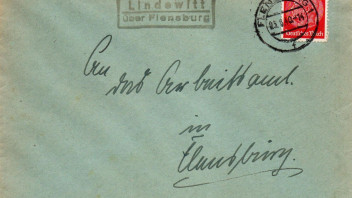 Lindewitt
über Flensburg
FLENSBURG 1
Deutsches Reich
An
das Arbeitsamt
in
Flensburg.